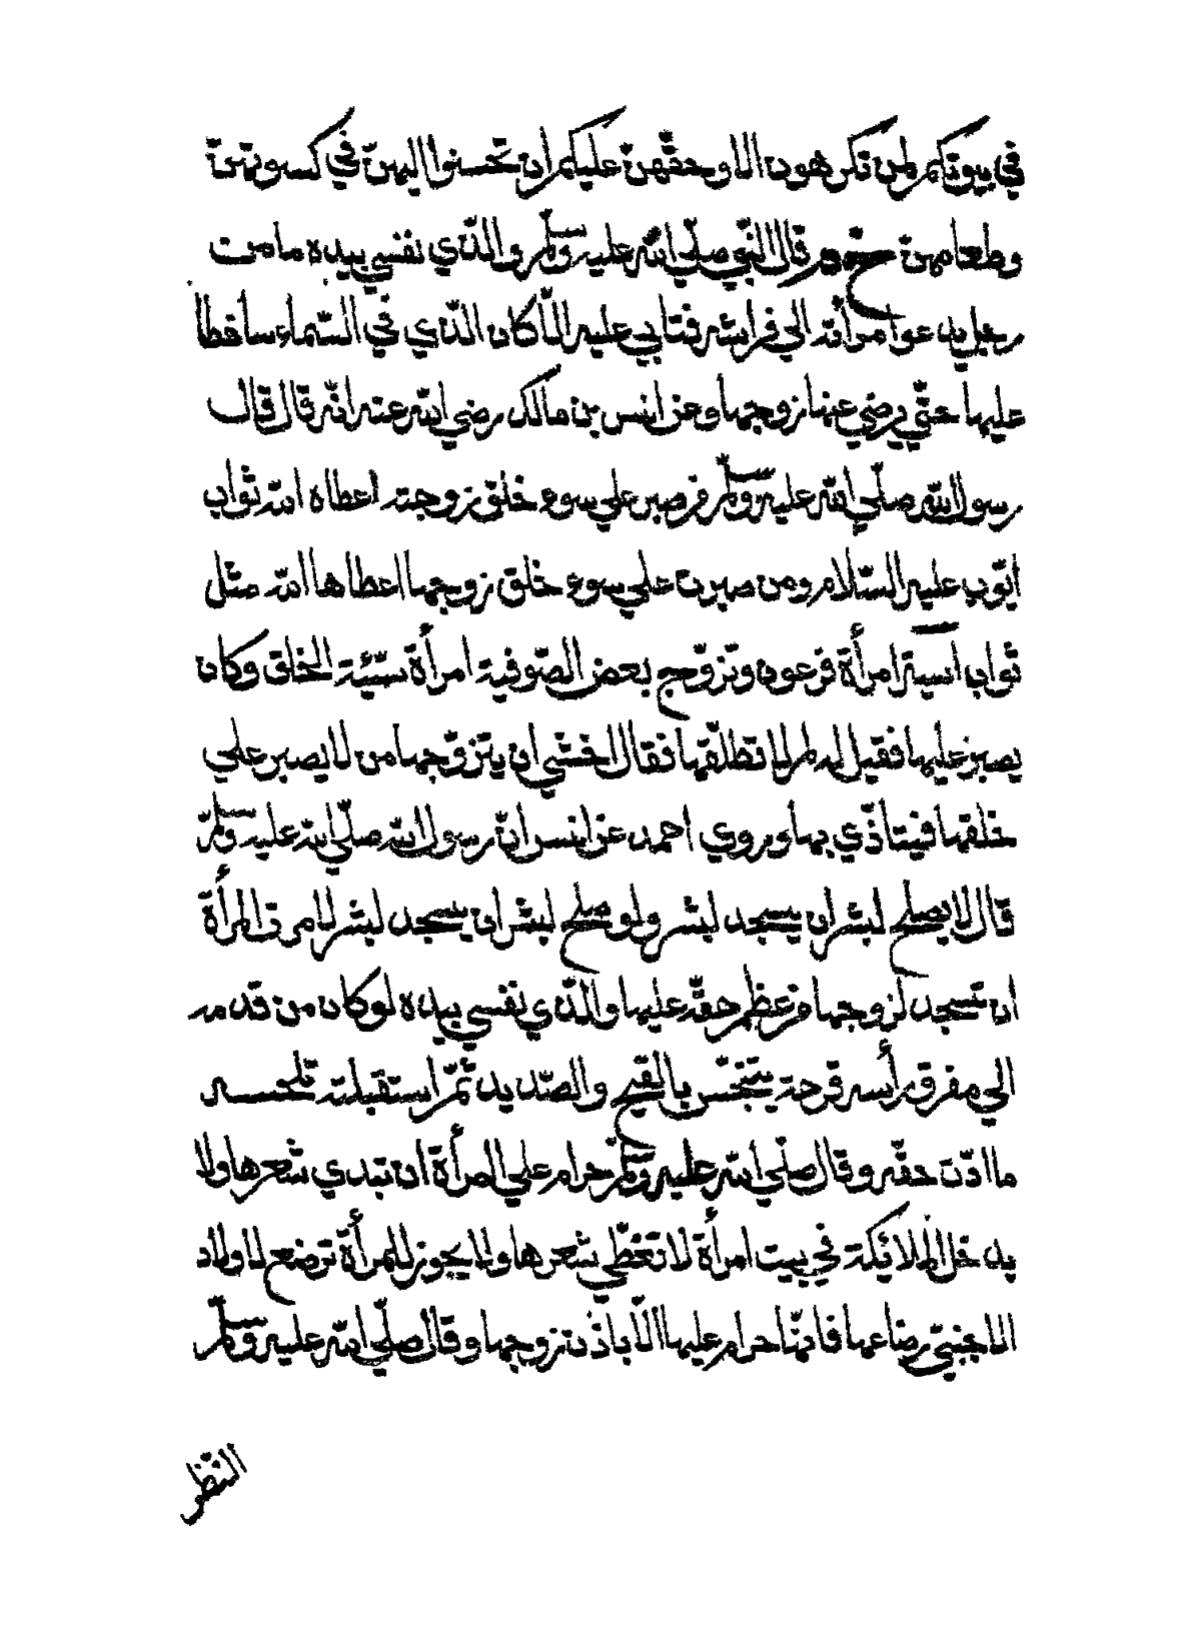 في بيوتكم لمن تكرهون الا وحقّهنّ عليكم ان تحسنوا اليهنّ في كسوتهنّ
وطعامهنّ قال النّبي صلّي الله عليه وسلّم والّذي نفسي بيده ما من
رجل يدعوا امرأته الي فراشه فتابي عليه الّا كان الّذي في السّماء ساخطا
عليها حتّي يرضي عنها زوجها وعن انس بن مالك رضي الله عنه انّه قال قال
رسول الله صلّي الله عليه وسلّم من صبر علي سوء خلق زوجته اعطاه الله ثواب
ايّوب عليه السّلام ومن صبرت علي سوء خلق زوجها اعطاها الله مثل
ثواب آسية امرأة فرعون وتزوّج بعض الصّوفية امرأة سيّئة الخلق وكان
يصبر عليها فقيل له لم لا تطلّقها فقال اخشي ان يتزوّجها من لا يصبر علي
خلقها فيتاذّي بها وروي احمد عن انس انّ رسول الله صلّي الله عليه وسلّم
قال لا يصلح لبشر ان يسجد لبشر ولو صلح لبشر ان يسجد لبشر لامرت المرأة
ان تسجد لزوجها من عظم حقّه عليها والّذي نفسي بيده لو كان من قدمه
الي مفرق رأسه قرحة يتبجّس بالقيح والصّديد ثمّ استقبلته تلحسه
ما ادّت حقّه وقال صلّي الله عليه وسلّم حرام علي المرأة ان تبدي شعرها ولا
يدخل الملائكة في بيت امرأة لا تغطّي شعرها ولا يجوز للمرأة ترضع لاولاد
الاجنبيّ رضاعها فانّها حرام عليها الّا باذن زوجها وقال صلّي الله عليه وسلّم
النّظر